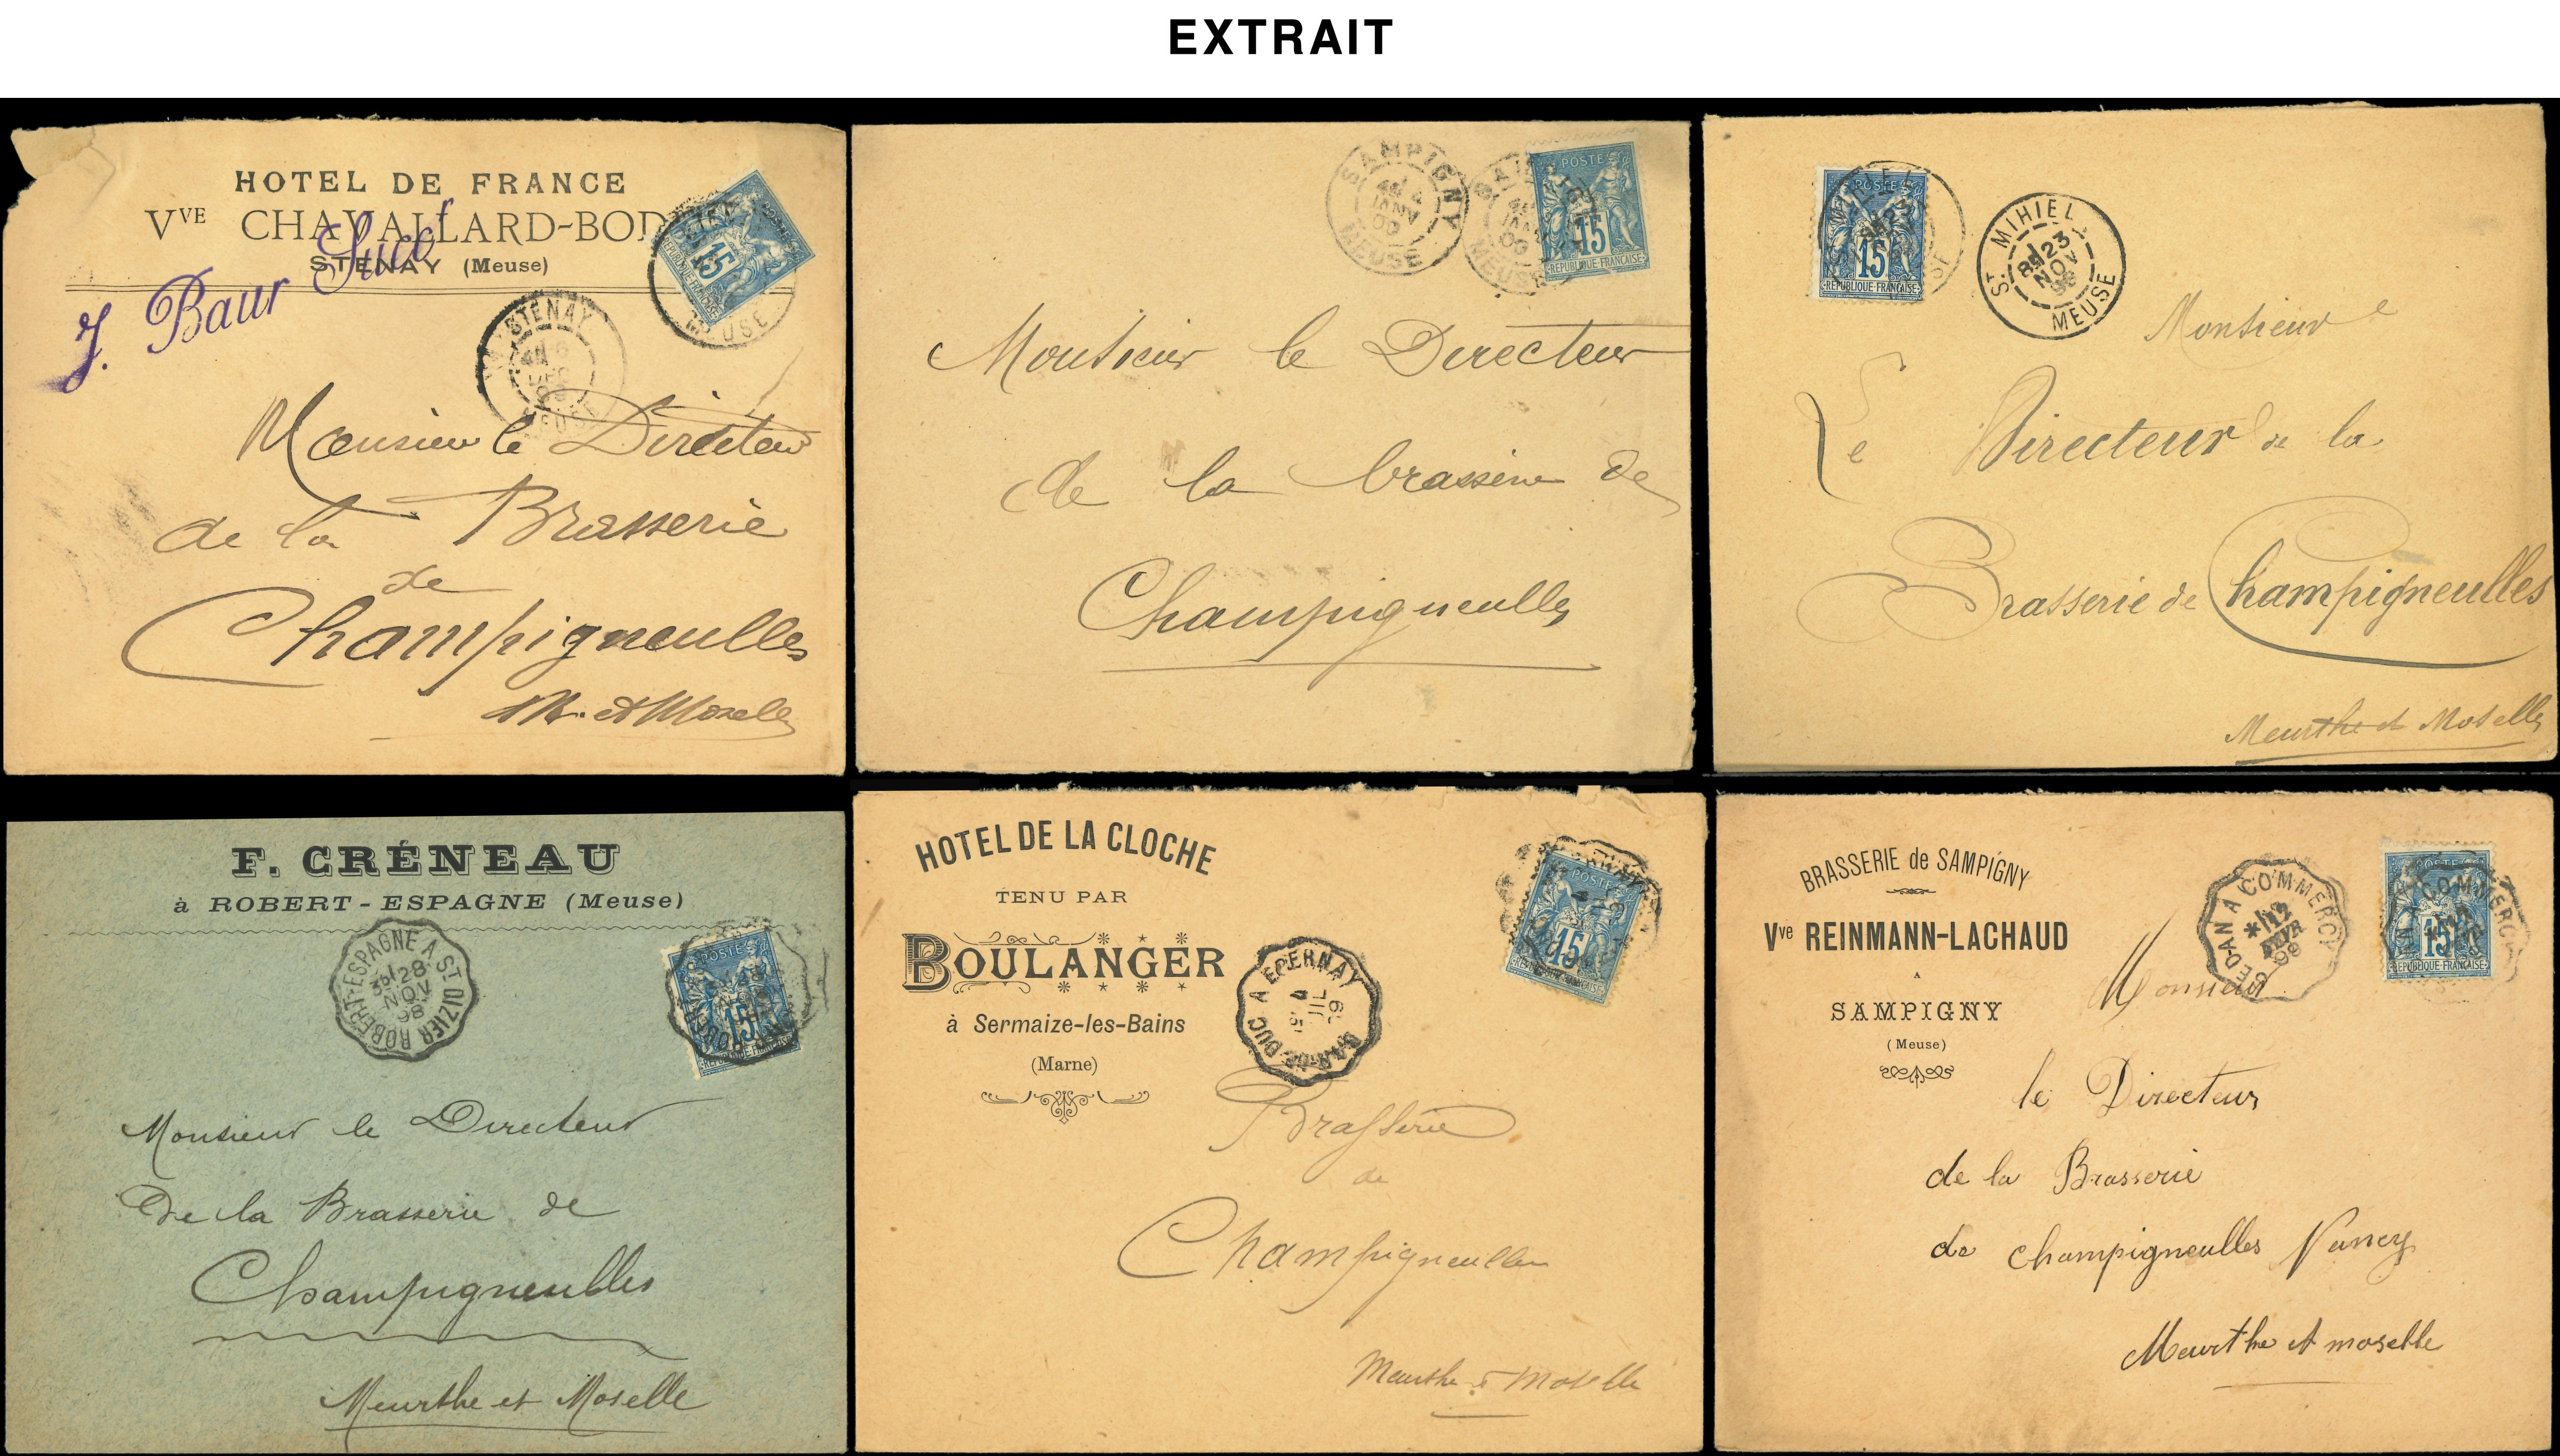 EXTRAIT
HOTEL DE FRANCE
VVE CHAVAILLARD-BOD
STENAY (Meuse)
J. Baur Succr
15
STENAY
6
DEC
MEUSE
Monsieur le Directeur
de la Brasserie
de
Champigneulles
M. et Moselle
SAMPIGNY
JANV
00
MEUSE
POSTE
15
REPUBLIQUE FRANÇAISE
Monsieur le Directeur
de la brasserie de
Champigneulles
POSTE
15
REPUBLIQUE FRANÇAISE
ST MIHIEL
23
NOV
98
MEUSE
Monsieur
Le Directeur de la
Brasserie de Champigneulles
Meurthe et Moselle
F. CRÉNEAU
à ROBERT-ESPAGNE (Meuse)
ROBERT-ESPAGNE A ST DIZIER
28
NOV
98
POSTE
15
Monsieur le Directeur
De la Brasserie de
Champigneulles
Meurthe et Moselle
HOTEL DE LA CLOCHE
TENU PAR
BOULANGER
à Sermaize-les-Bains
(Marne)
BAR-LE-DUC A EPERNAY
POSTE
15
Brasserie
de
Champigneulles
Meurthe & Moselle
BRASSERIE de SAMPIGNY
Vve REINMANN-LACHAUD
A
SAMPIGNY
(Meuse)
SEDAN A COMMERCY
12
AVR
99
POSTE
15
REPUBLIQUE FRANÇAISE
Monsieur
le Directeur
de la Brasserie
de Champigneulles Nancy
Meurthe et moselle